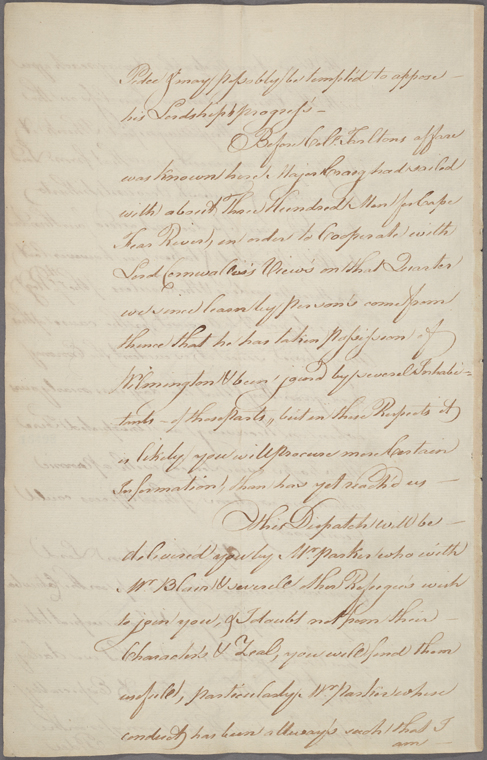 Pedee & may possibly be tempted to oppose —
his Lordship's progress —
Before Colo. Tarltons affair
was known here, Major Craig had sailed
with about Three Hundred Men for Cape
Fear River, in order to Cooperate with
Lord Cornwallis's Views on that Quarter
we since learn by person's come from
thence that he has taken possession of
Wilmington & been joined by several Inhabi-
tants — of those Parts, but in these Respects it
is likely you will procure more Certain
Information, than has yet reach'd us —
This Dispatch will be —
delivered you by Mr Parker who with
Mr Blair & several other Refugee's wish
to join you, & I doubt not from their —
Character's & Zeal, you will find them
useful, particularly Mr Parker whose
conduct has been allway's such that I
am —